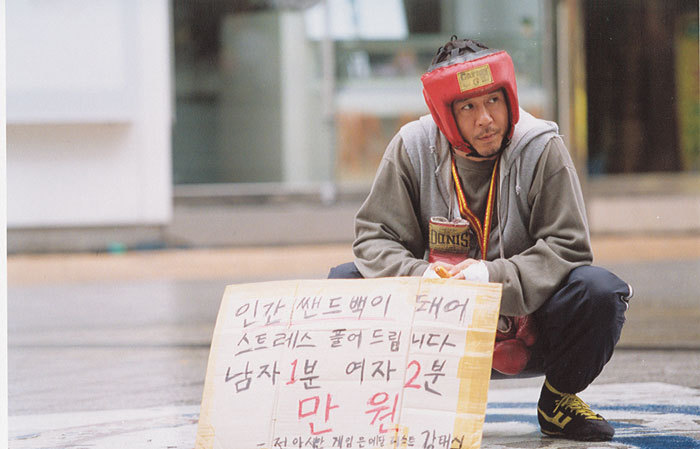 인간 쌘드백이 돼어
스트레스 풀어드립니다
남자 1분 여자 2분
만원
- 전 아시안 게임 은메달 리스트 강태식